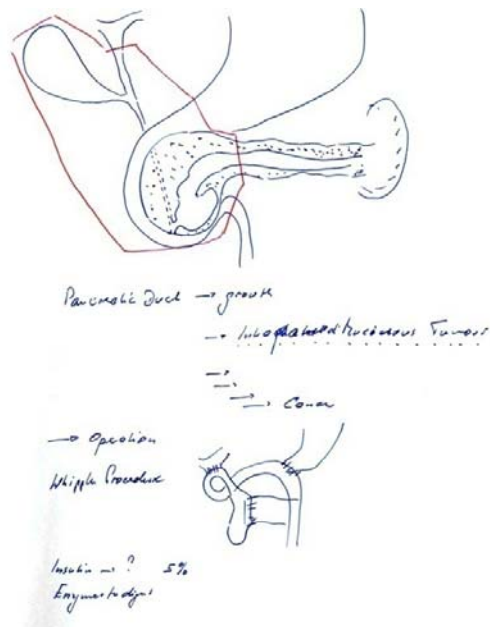 Pancreatic Duct → growth
→ Mucinous Tumor
→
→
→
→ Cancer
→ Operation
Whipple Procedure
Insulin → ? 5%
Enzymes to digest